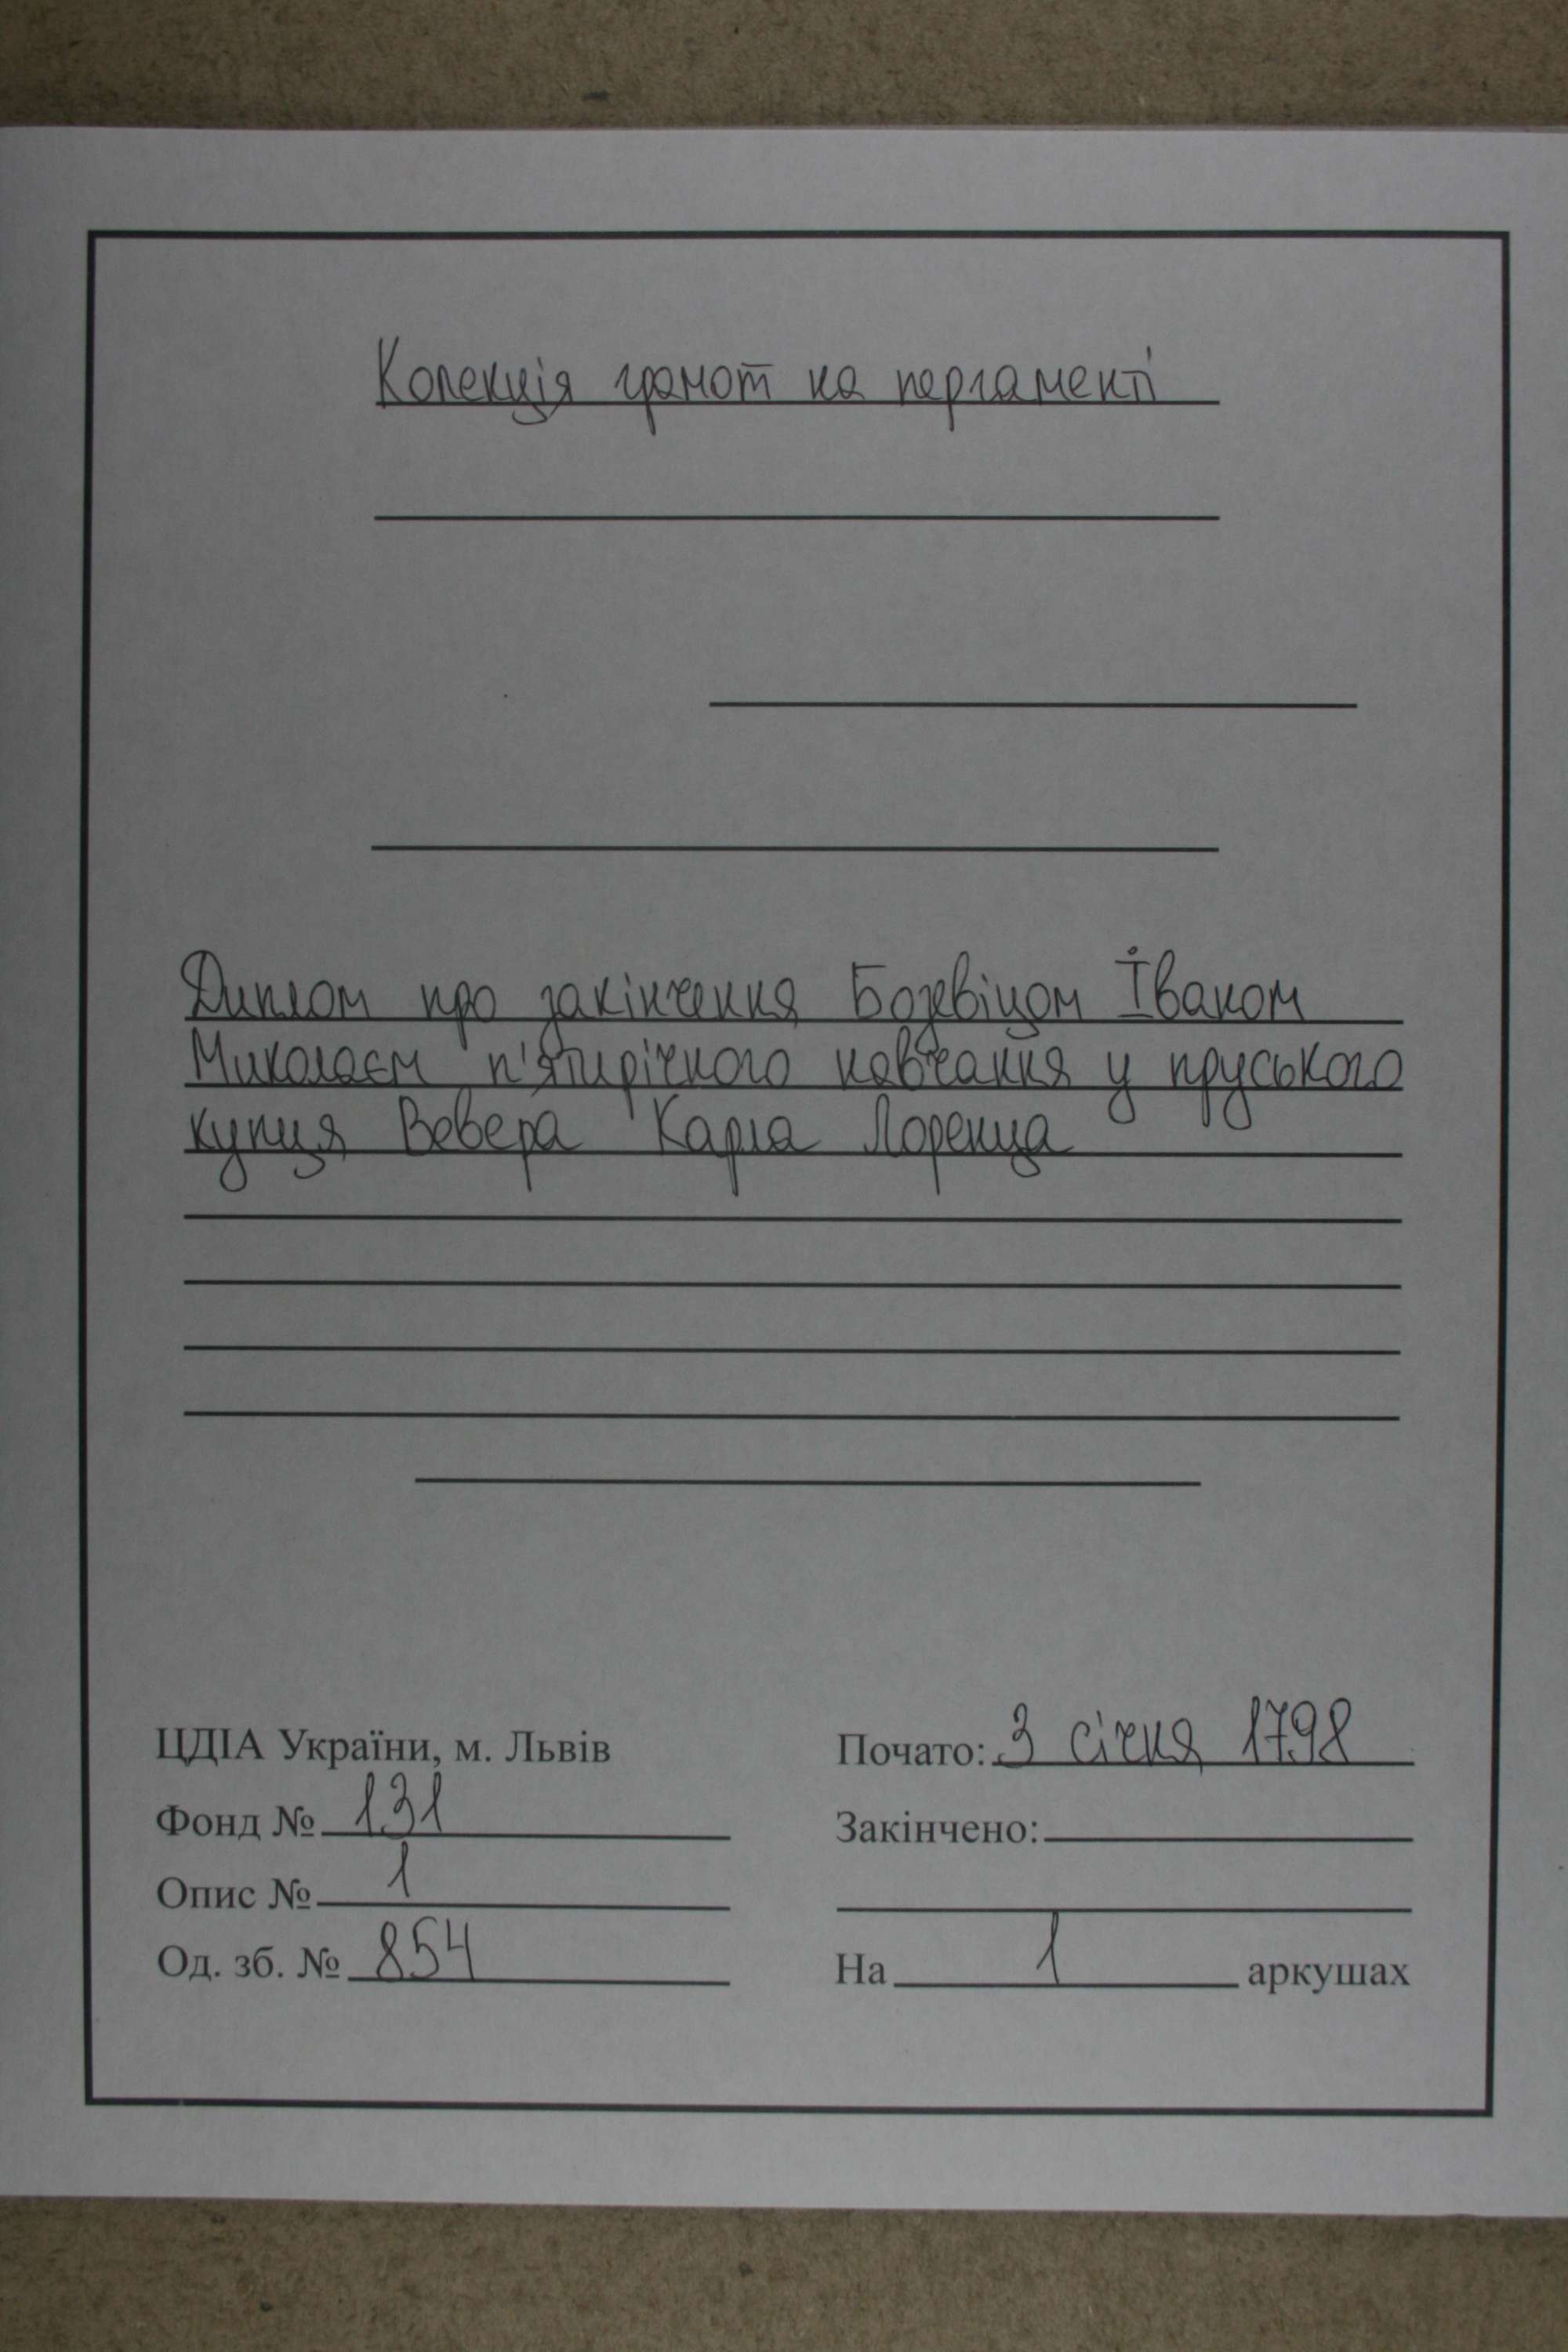 Колекція грамот на пергаменті
Диплом про закінчення Бозевіцом Іваном
Миколаєм п'ятирічного навчання у пруського
купця Вевера Карла Лоренца
ЦДІА України, м. Львів
Фонд № 131
Опис № 1
Од. зб. № 854
Почато: 3 січня 1798
Закінчено:
На 1 аркушах